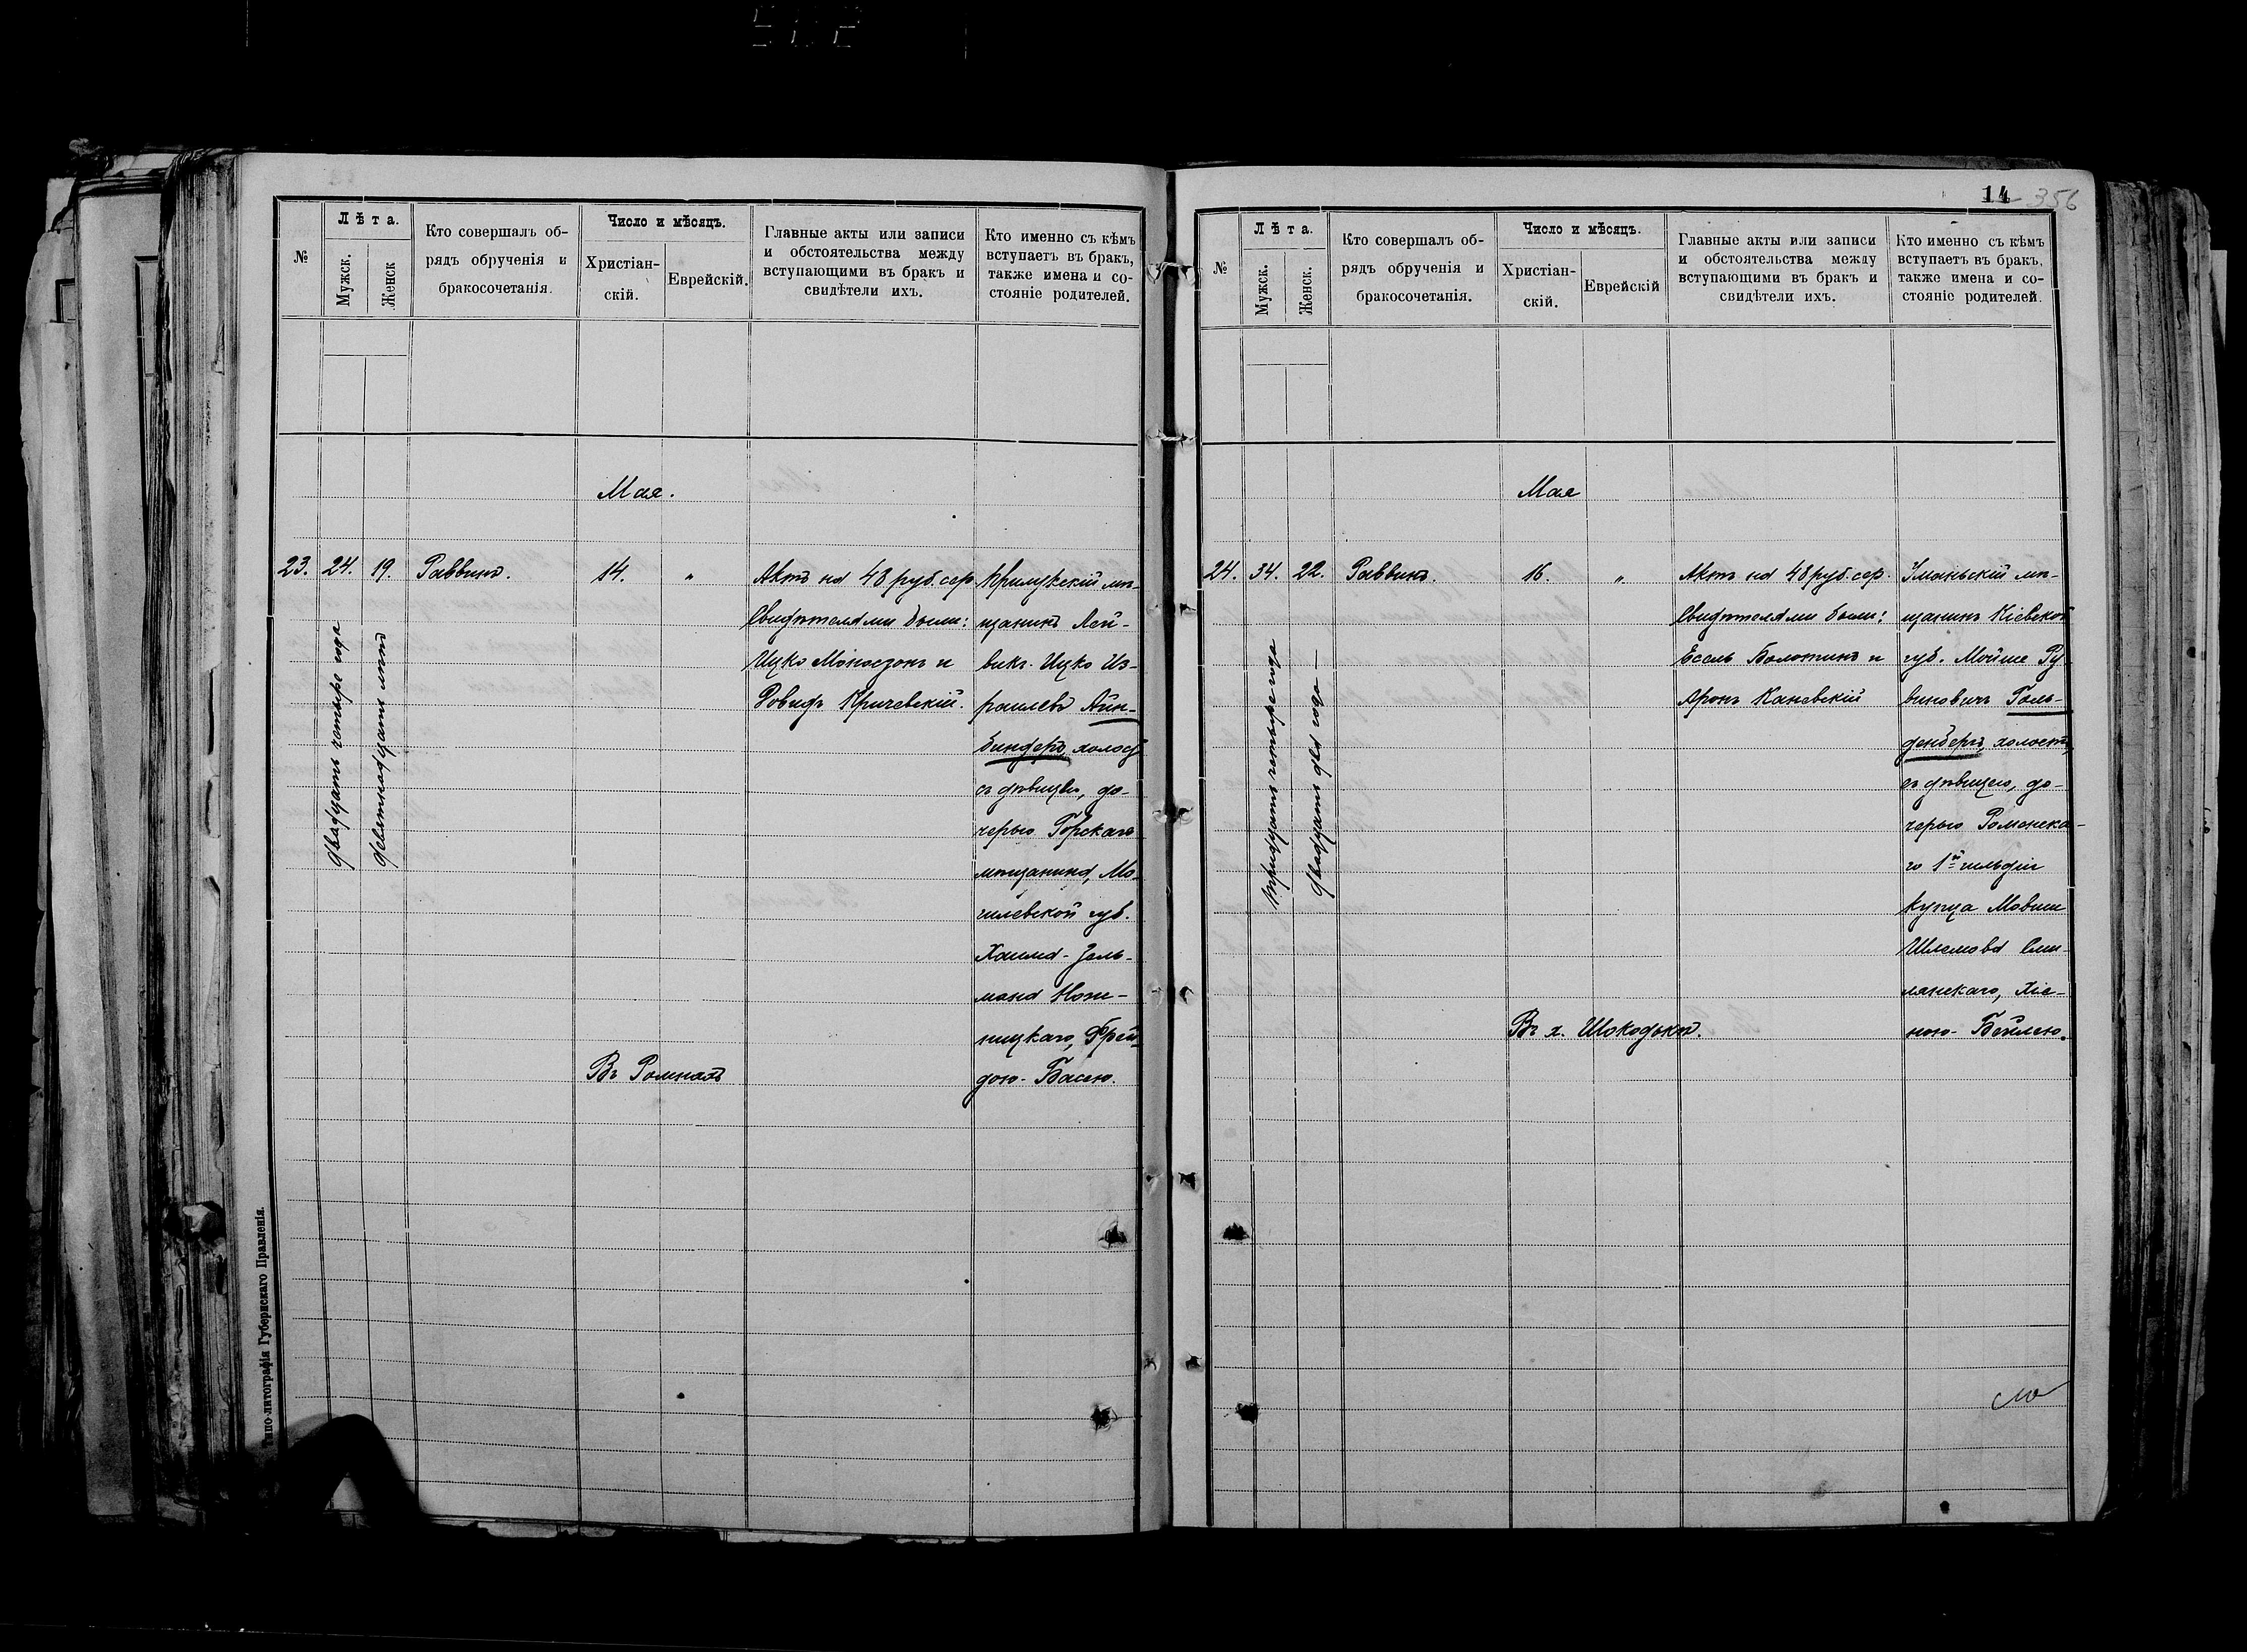 №
Лѣта.
Мужск.
Женск
Кто совершалъ об-
рядъ обрученія и
бракосочетанія.
Число и мѣсяцъ.
Христіан-
скій.
Еврейскій.
Главные акты или записи
и обстоятельства между
вступающими въ бракъ и
свидѣтели ихъ.
Кто именно съ кѣмъ
вступаетъ въ бракъ,
также имена и со-
стояніе родителей.
Мая.
23.
24.
19.
двадцать четыре года
девятнадцать лѣтъ
Раввинъ.
14.
"
Актъ на 48 руб. сер.
Свидѣтелями были:
Ицко Моносзонъ и
Довидъ Кричевскій.
Прилукскій мѣ-
щанинъ Лей-
викъ-Ицко Из-
раилевъ Айн-
биндеръ, холост
съ дѣвицею, до-
черью Горскаго
мѣщанина, Мо-
гилевской губ.
Хаима-Зель-
мана
ницкаго, Фрей-
дою-Басею.
Въ Ромнахъ
Типо-литографія Губернскаго Правленія.
14
356
№
Лѣта.
Мужск.
Женск.
Кто совершалъ об-
рядъ обрученія и
бракосочетанія.
Число и мѣсяцъ.
Христіан-
скій.
Еврейскій
Главные акты или записи
и обстоятельства между
вступающими въ бракъ и
свидѣтели ихъ.
Кто именно съ кѣмъ
вступаетъ въ бракъ,
также имена и со-
стояніе родителей.
Мая
24.
34.
22.
тридцать четыре года
двадцать два года —
Раввинъ.
16.
"
Актъ на 48 руб. сер.
Свидѣтелями были:
Есель Болотинъ и
Аронъ Каневскій
Уманьскій мѣ-
щанинъ Кіевской
губ. Мойше Ру-
виновичъ Голь-
денбергъ, холостъ,
съ дѣвицею, до-
черью Роменска-
го 1й гильдіи
купца Мовши
Шлемова Сми-
лянскаго, Хіе-
ною-Бейлею.
Въ х.